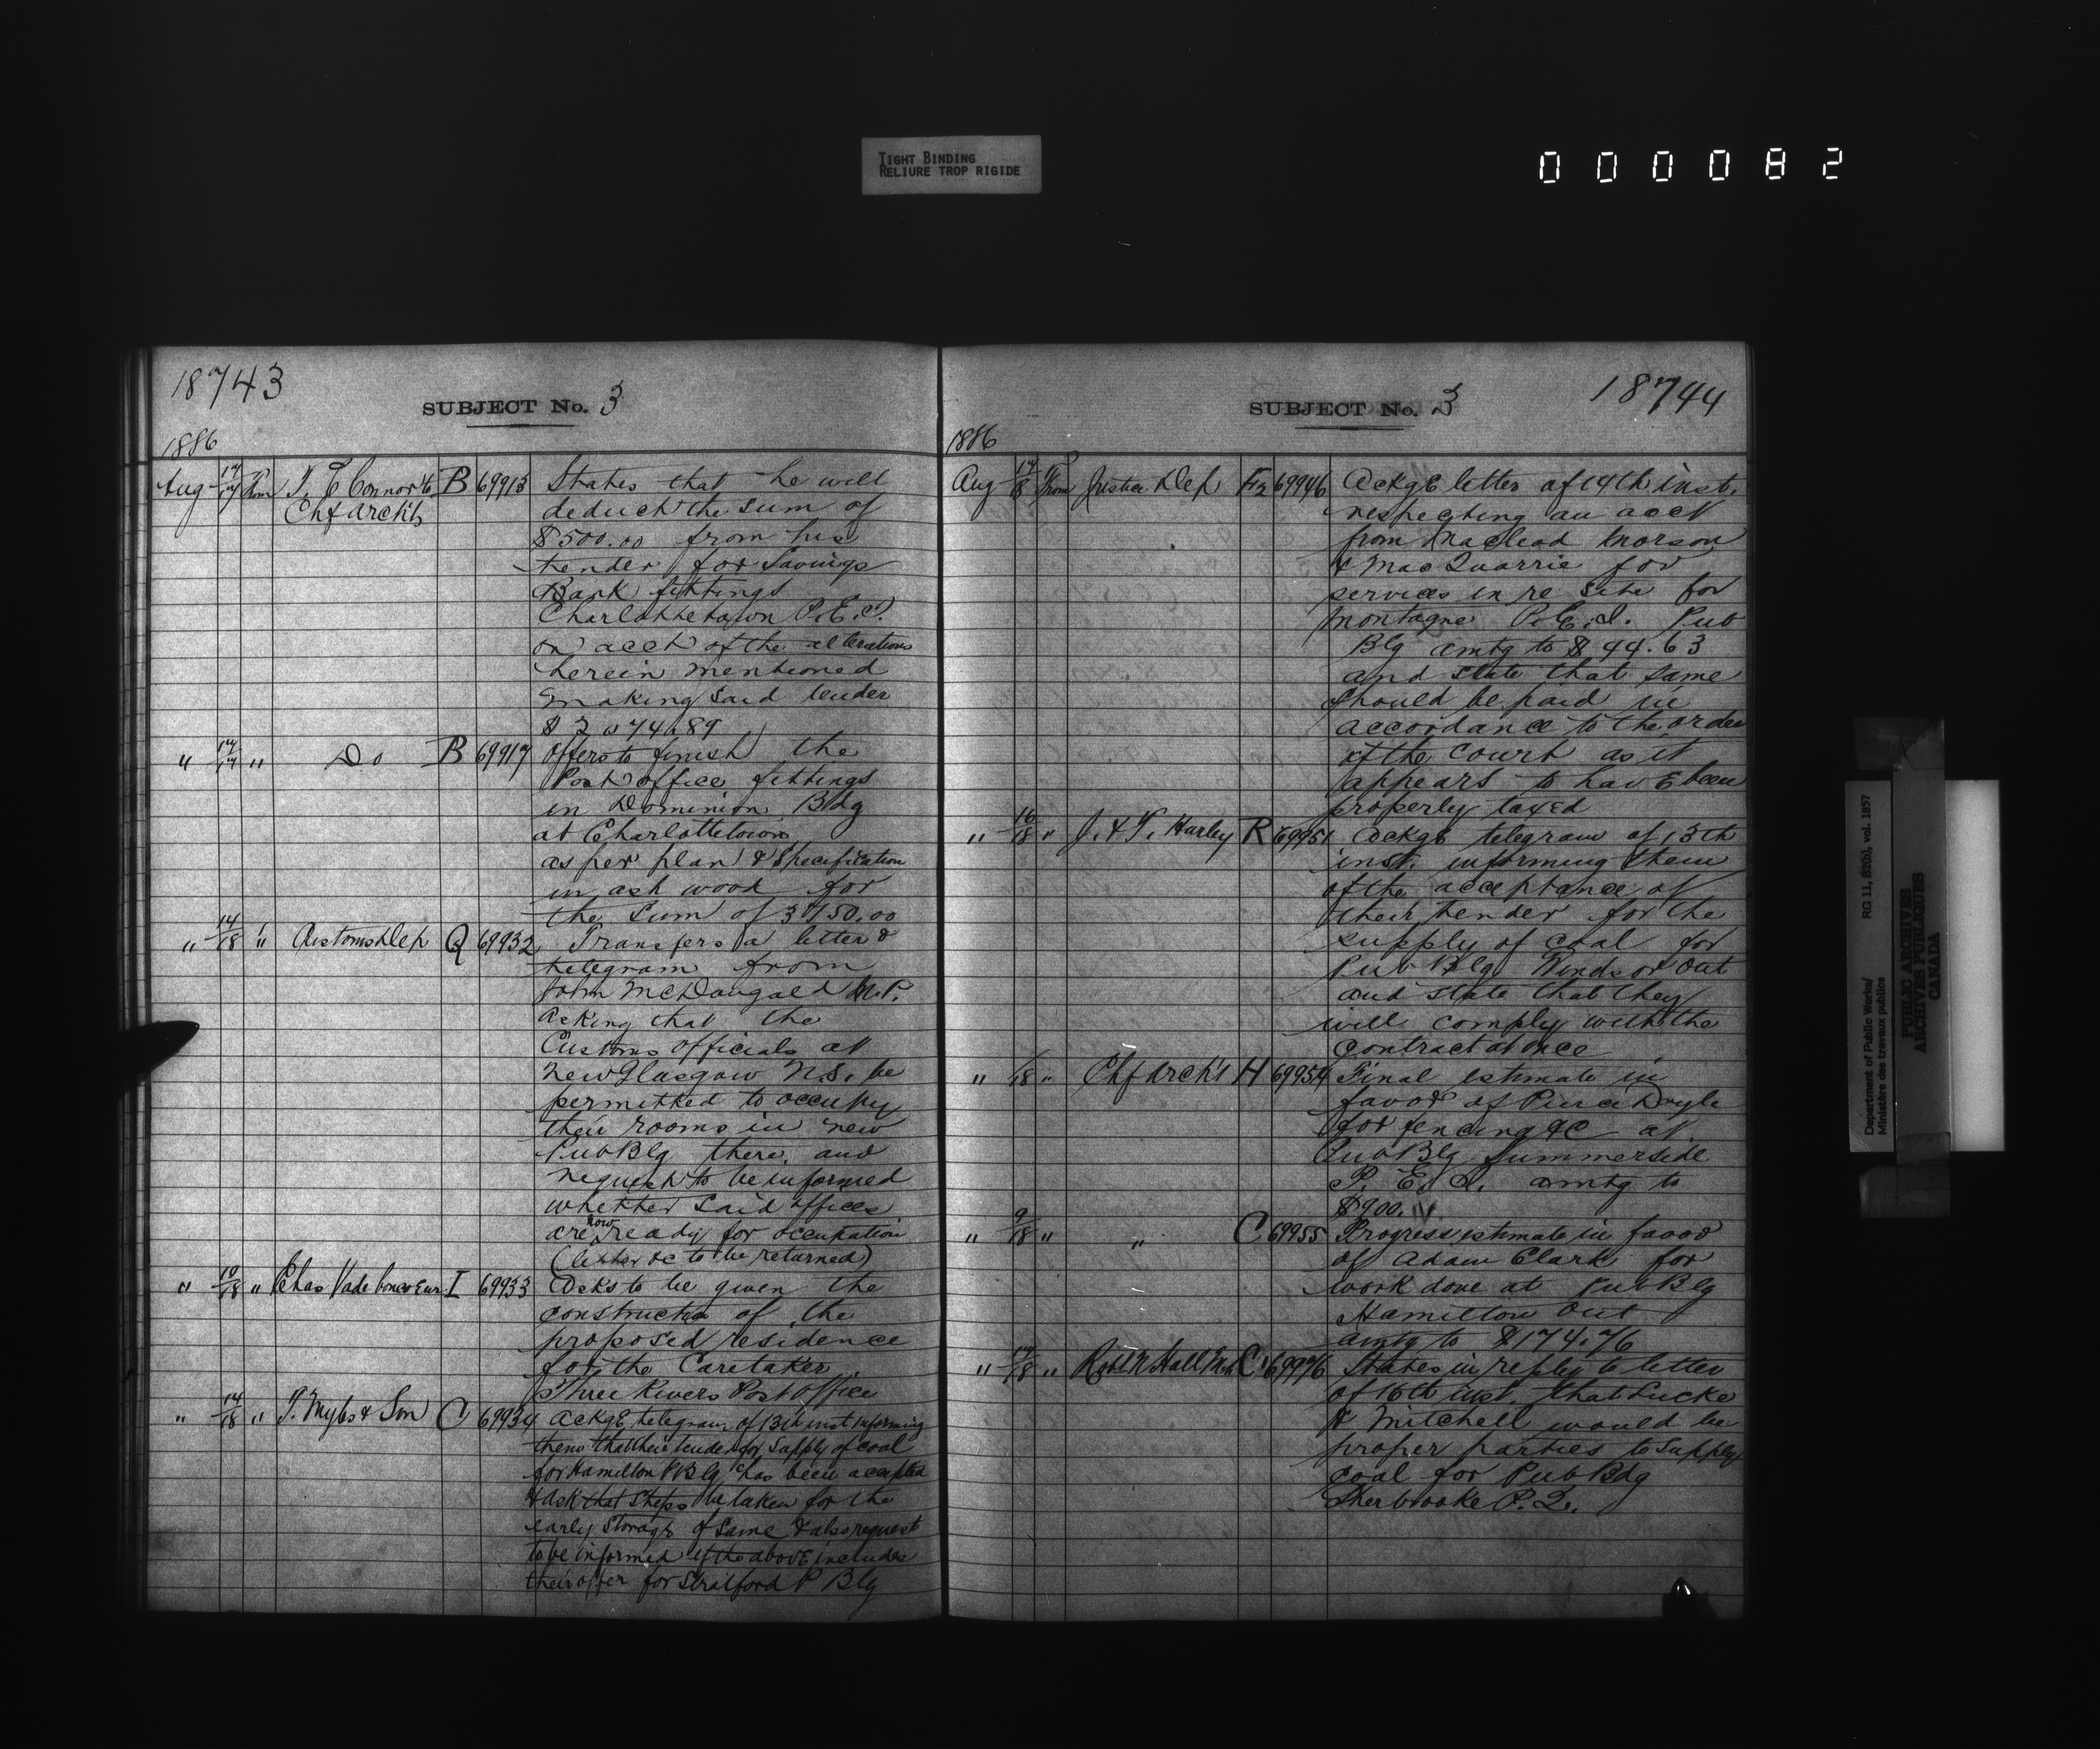 TIGHT BINDING
RELIURE TROP RIGIDE
000082
18743
SUBJECT No. 3
1886
Aug 17/17 From T. E Connor to B 69913 States that he will
Chf Archt deduct the sum of
$500.00 from his
tender for Savings
Bank fittings
Charlottetown P.E.I.
on acct of the alterations
herein mentioned
making said tender
" 17/17 " Do B 69917 Offers to finish the
Post office fittings
in Dominion Bldg
at Charlottetown
as per plan & Specification
in ash wood for
the sum of 3150.00
" 14/18 " Customs Dep Q 69932 Transfers a letter &
telegram from
John McDougald M.P.
asking that the
Customs officials at
New Glasgow N.S. be
permitted to occupy
their rooms in new
Pub Blg there, and
request to be informed
whether said offices
are now ready for occupation
(letter &c to be returned)
" 10/18 " Chas Vadeboncoeur I 69933 Asks to be given the
construction of the
proposed residence
for the Caretaker
Three Rivers Post office
" 14/18 " T. Myles & Son C 69934 Ackge telegram of 13th inst informing
them that their tender for supply of coal
for Hamilton P Blg has been accepted
& ask that steps be taken for the
early storage of same & also request
to be informed if the above includes
their offer for Stratford P Blg
18744
SUBJECT No. 3
1886
Aug 17/18 From Justice Dep F2 69946 Ackge letter of 14th inst.
respecting an acct
from Macleod Morson
& MacQuarrie for
services in re site for
Montague P.E.I. Pub
Blg amtg to $44.63
and state that same
should be paid in
accordance to the order
of the court as it
appears to have been
properly taxed
" 16/18 " J. & T. Hurley R 69951 Ackge telegram of 13th
inst. informing them
of the acceptance of
their tender for the
supply of coal for
Pub Blg Windsor Ont
and state that they
will comply with the
contract at once
" /18 " Chf Archt H 69954 Final estimate in
favor of Pierce Doyle
for fencing &c at
Pub Blg Summerside
P. E. I. amtg to
$900.
" 9/18 " " C 69955 Progress estimate in favor
of Adam Clark for
work done at Pub Blg
Hamilton Ont
amtg to $174.76
" 17/18 " Robt N Hall C 69976 States in reply to letter
of 16th inst. that Lucke
& Mitchell would be
proper parties to supply
coal for Pub Bdg
Sherbrooke P.Q.
Department of Public Works/
Ministère des travaux publics
RG 11, B2(b), vol. 1857
PUBLIC ARCHIVES
ARCHIVES PUBLIQUES
CANADA